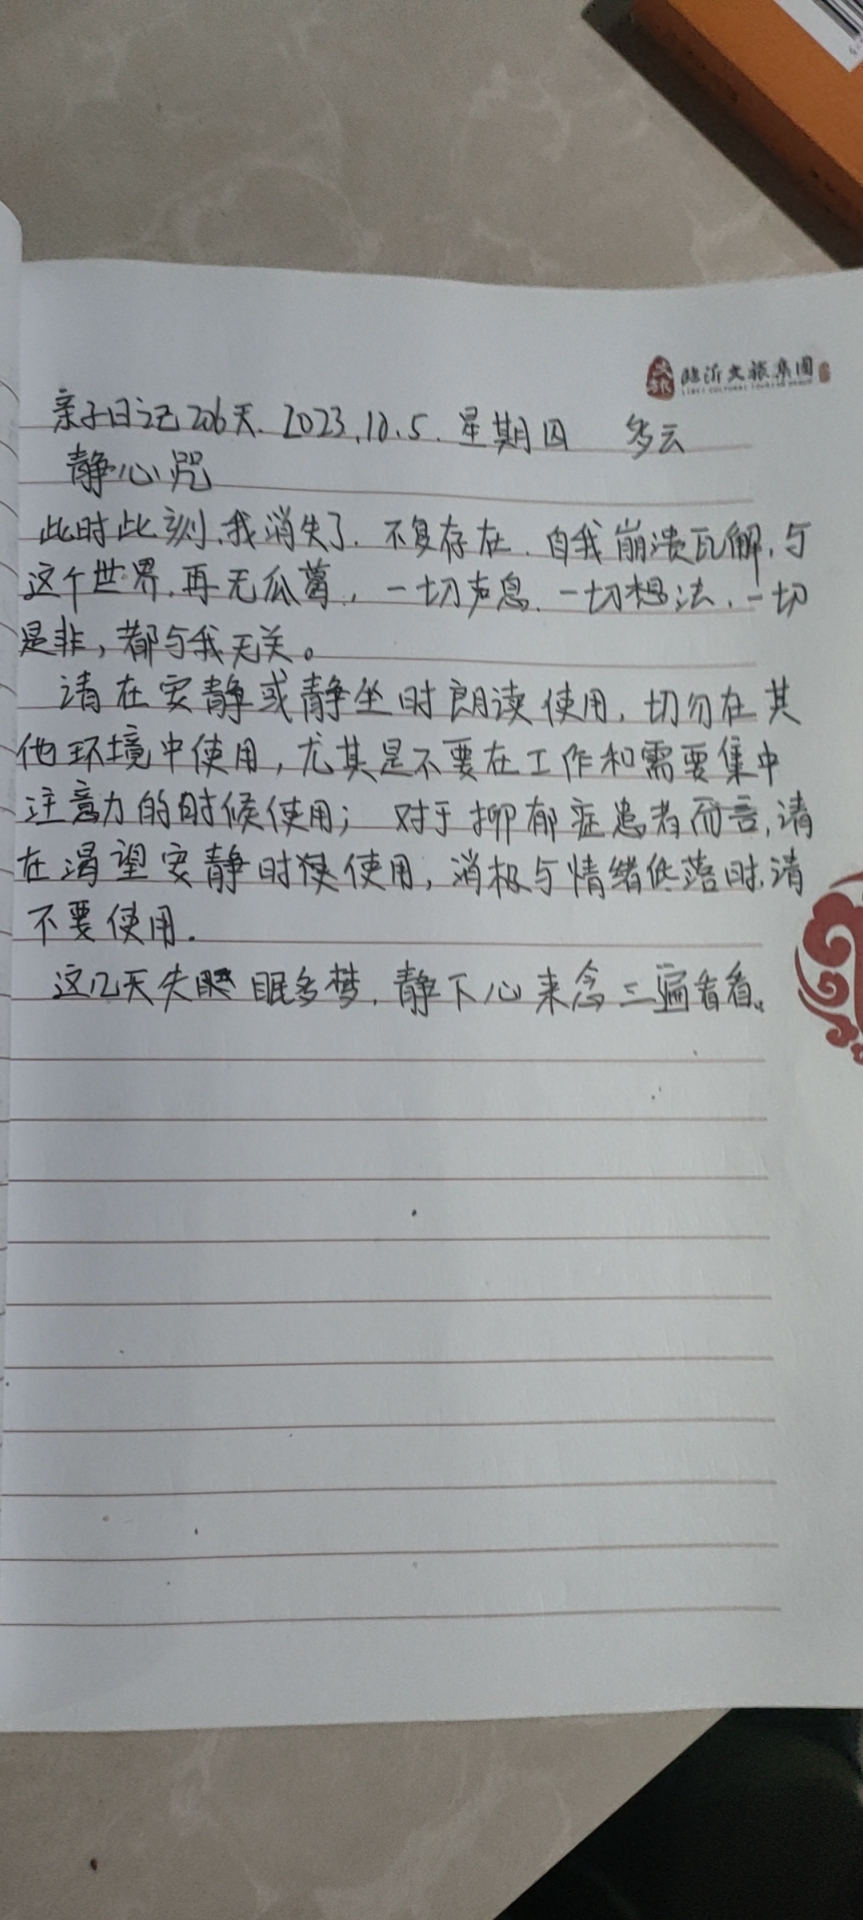 临沂文旅集团
亲子日记206天. 2023.10.5. 星期四 多云
静心咒
此时此刻,我消失了.不复存在.自我崩溃瓦解,与
这个世界.再无瓜葛,一切声息.一切想法.一切
是非,都与我无关。
请在安静或静坐时朗读使用,切勿在其
他环境中使用,尤其是不要在工作和需要集中
注意力的时候使用;对于抑郁症患者而言,请
在渴望安静时使用,消极与情绪低落时,请
不要使用.
这几天失眠多梦,静下心来念三遍看看。